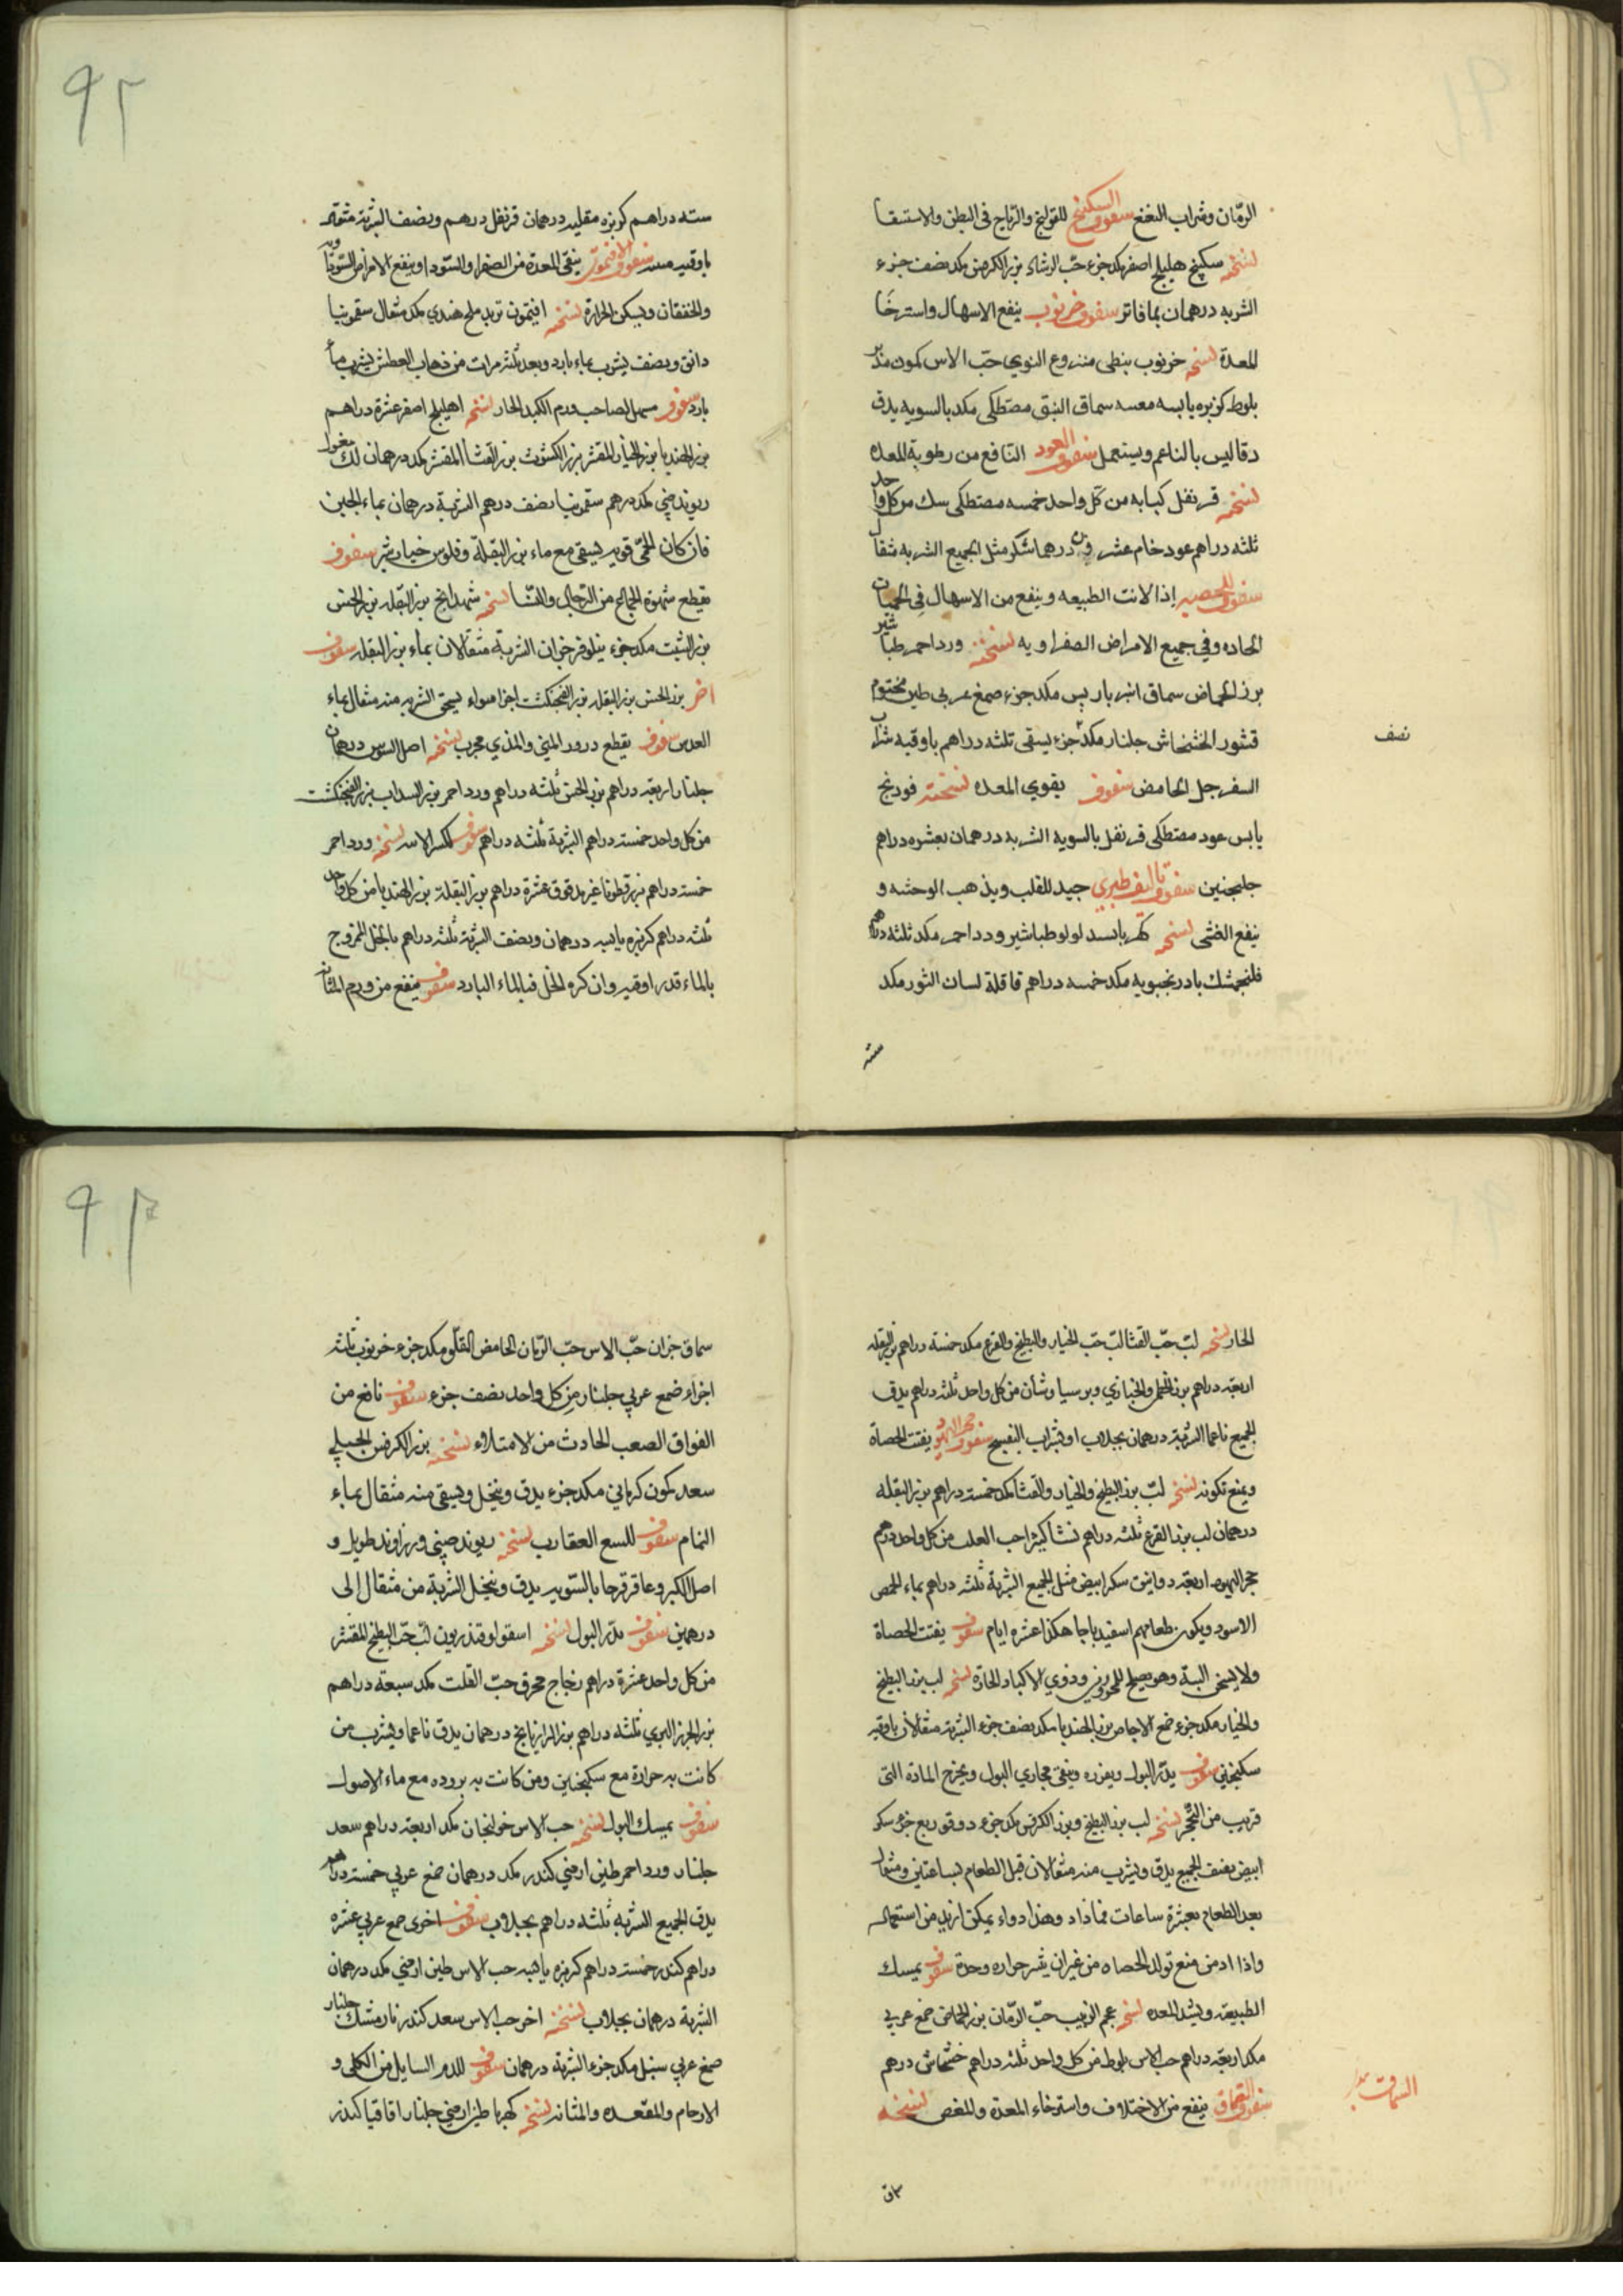 ٩١
الرمّان وشراب النعنع سفوف السكبينج للقولنج والرياح في البطن والاستسقا
نسخته سكبينج هليلج اصفر مكد جزء حب الرشاد بزر الكرفس مكد نصف جزء
الشربه درهمان بما فاتر سفوف خرنوب ينفع الاسهال واسترخا
المعدة نسخته خرنوب نبطى منزوع النوي حبّ الاس كمون مدبر
بلوط كزبره يابسه سماق النبق مصتطكى مكد بالسويه يدق
دقا ليس بالناعم ويستعمل سفوف العود النّافع من رطوبة المعده
نسخته قرنفل كبابه من كل واحد خمسه مصتطكى سك من كل واحد
ثلثه دراهم عود خام عشرون درهما سكر مثل الجميع الشربه مثقال
سفوف للحصبه إذا لانت الطبيعه وينفع من الاسهال في الحميات
الحاده وفي جميع الامراض الصفراويه نسخته ورد احمر طباشير
بزر الحماض سماق انبرباريس مكد جزء صمغ عربي طين مختوم
قشور الخشخاش جلنار مكد جزء يسقى ثلثه دراهم باوقيه شراب
نصف
السفرجل الحامض سفوف يقوي المعده نسخته فودنج
يابس عود مصتطكى قرنفل بالسويه الشربه درهمان بعشره دراهم
جلنجبين سفوف جيد للقلب ويذهب الوحشه و
ينفع الغشى نسخته كهربا بسد لولو طباشير ورد احمر مكد ثلثه دراهم
فلنجمشك بادرنجبويه مكد خمسه دراهم قاقلة لسان الثور مكد
سته
٩٢
سته دراهم كزبره مقليه درهمان قرنفل درهم ونصف الشربة مثقال
باوقيه سفوف الافتيمون ينقي المعدة من الصفرا والسّودا وينفع الامراض السّوداويه
والخفقان ويسكن الحرارة نسخته افتيمون تربد ملح هندي مكد مثقال سقمونيا
دانق ونصف يشرب بماء بارد وبعد ثلث مرات من ذهاب العطش يشرب ماء
بارد سفوف مسهل لصاحب ورم الكبد الحار نسخته اهليلج اصفر عشرة دراهم
بزر الهندبا بزر الخيار المقشر بزر الكشوث بزر القثا المقشر مكد درهمان لك مغسول
ريوند صيني مكد درهم سقمونيا نصف درهم الشربة درهمان بماء الجبن
فان كان الحمّى قويه يسقى مع ماء بزر البقلة وفلوس خيارشنبر سفوف
يقطع شهوة الجماع من الرّجال والنّسا نسخته شهدانج بزر البقله بزر الخس
بزر الشبت مكد جزء نيلوفر جزان الشربة مثقالان بماء بزر البقله سفوف
اخر بزر الخس بزر البقله بزر الفنجنكشت اجزا سواء يسحق الشربه منه مثقال بماء
العدس سفوف يقطع درور المني والمذي مجرب نسخته اصل السوس درهمان
جلنار اربعة دراهم بزر الخس ثلثه دراهم ورد احمر بزر السداب بزر الفنجنكشت
من كل واحد خمسه دراهم الشربة ثلثه دراهم سفوف نسخته ورد احمر
خمسه دراهم بزر قطونا غير مدقوق عشرة دراهم بزر البقلة بزر الهندبا من كل واحد
ثلثه دراهم كزبره يابسه درهمان ونصف الشربة ثلثه دراهم بالخل الممزوج
بالماء قدر اوقيه وان كره الخل فبالماء البارد سفوف ينفع من ورم المثانة
الحار نسخته لبّ حبّ القثا لبّ حبّ الخيار والبطيخ والقرع مكد خمسة دراهم بزر البقله
اربعة دراهم بزر الخطمي والخبازي وبرسياوشان من كل واحد ثلثه دراهم يدق
الجميع ناعما الشربة درهمان بجلاب او بشراب البنفسج سفوف حجر اليهود يفتت الحصاة
ويمنع تكونه نسخته لبّ بزر البطيخ والخيار والقثا مكد خمسة دراهم بزر البقله
درهمان لب بزر القرع ثلثه دراهم نشا كثيرا حب القلت من كل واحد درهم
حجر اليهود اربعة دوانيق سكر ابيض مثل الجميع الشربة ثلثه دراهم بماء الحمص
الاسود ويكون طعامهم اسفيدباجا هكذا عشره ايام سفوف يفتت الحصاة
ولا يسخن البتة وهو يصلح للمحرورين وذوي الاكباد الحارة نسخته لب بزر البطيخ
والخيار مكد جزء صمغ الاجاص بزر الهندبا مكد نصف جزء الشربة مثقالان باوقيه
سكنجبين سفوف يدرّ البول ويغزره وينقى مجاري البول ويخرج المادة التى
قريب من التّحجر نسخته لب بزر البطيخ وبزر الكرفس مكد جزء دوقو ربع جزء سكر
ابيض نصف الجميع يدق ويشرب منه مثقالان قبل الطعام بساعتين ومثقال
بعد الطعام بعشرة ساعات فما زاد وهذا دواء يمكن ان يدمن استعماله
واذا ادمن منع تولد الحصاه من غير ان يثير حراره وحدة سفوف يمسك
الطبيعه ويشد المعده نسخته عجم الزبيب حبّ الرّمان بزر الحماض صمغ عربي
مكد اربعة دراهم حب الاس بلوط من كل واحد ثلثه دراهم خشخاش درهم
سفوف السماق ينفع من الاختلاف واسترخاء المعدة والمغص نسخته
سماق
٩٣
سماق جزان حبّ الاس حبّ الرّمان الحامض المقلو مكد جزء خرنوب ثلثه
اجزاء صمغ عربي جلنار من كل واحد نصف جزء سفوف نافع من
الفواق الصعب الحادث من الامتلاء نسخته بزر الكرفس الجبلي
سعد كمون كرماني مكد جزء يدق وينخل ويسقى منه مثقال بماء
النمام سفوف للسع العقارب نسخته ريوند صيني وزراوند طويل و
اصل الكبر وعاقرقرحا بالسّويه يدق وينخل الشربة من مثقال إلى
درهمين سفوف يدرّ البول نسخته اسقولوقندريون لبّ حبّ البطيخ المقشر
من كل واحد عشرة دراهم زجاج محرق حبّ القلت مكد سبعة دراهم
بزر الجزر البري ثلثه دراهم بزر الرازيانج درهمان يدق ناعما ويشرب من
كانت به حرارة مع سكنجبين ومن كانت به بروده مع ماء الاصول
سفوف يمسك البول نسخته حب الاس خولنجان مكد اربعة دراهم سعد
جلنار ورد احمر طين ارمني كندر مكد درهمان صمغ عربي خمسة دراهم
يدق الجميع الشربه ثلثه دراهم بجلاب سفوف اخرى صمغ عربي عشره
دراهم كندر خمسة دراهم كزبره يابسه حب الاس طين ارمني مكد درهمان
الشربة درهمان بجلاب نسخته اخر حب الاس سعد كندر نارمشك جلنار
صمغ عربي سنبل مكد جزء الشربة درهمان سفوف للدم السايل من الكلى و
الارحام والمقعده والمثانه نسخته كهربا طين ارمني جلنار اقاقيا كندر